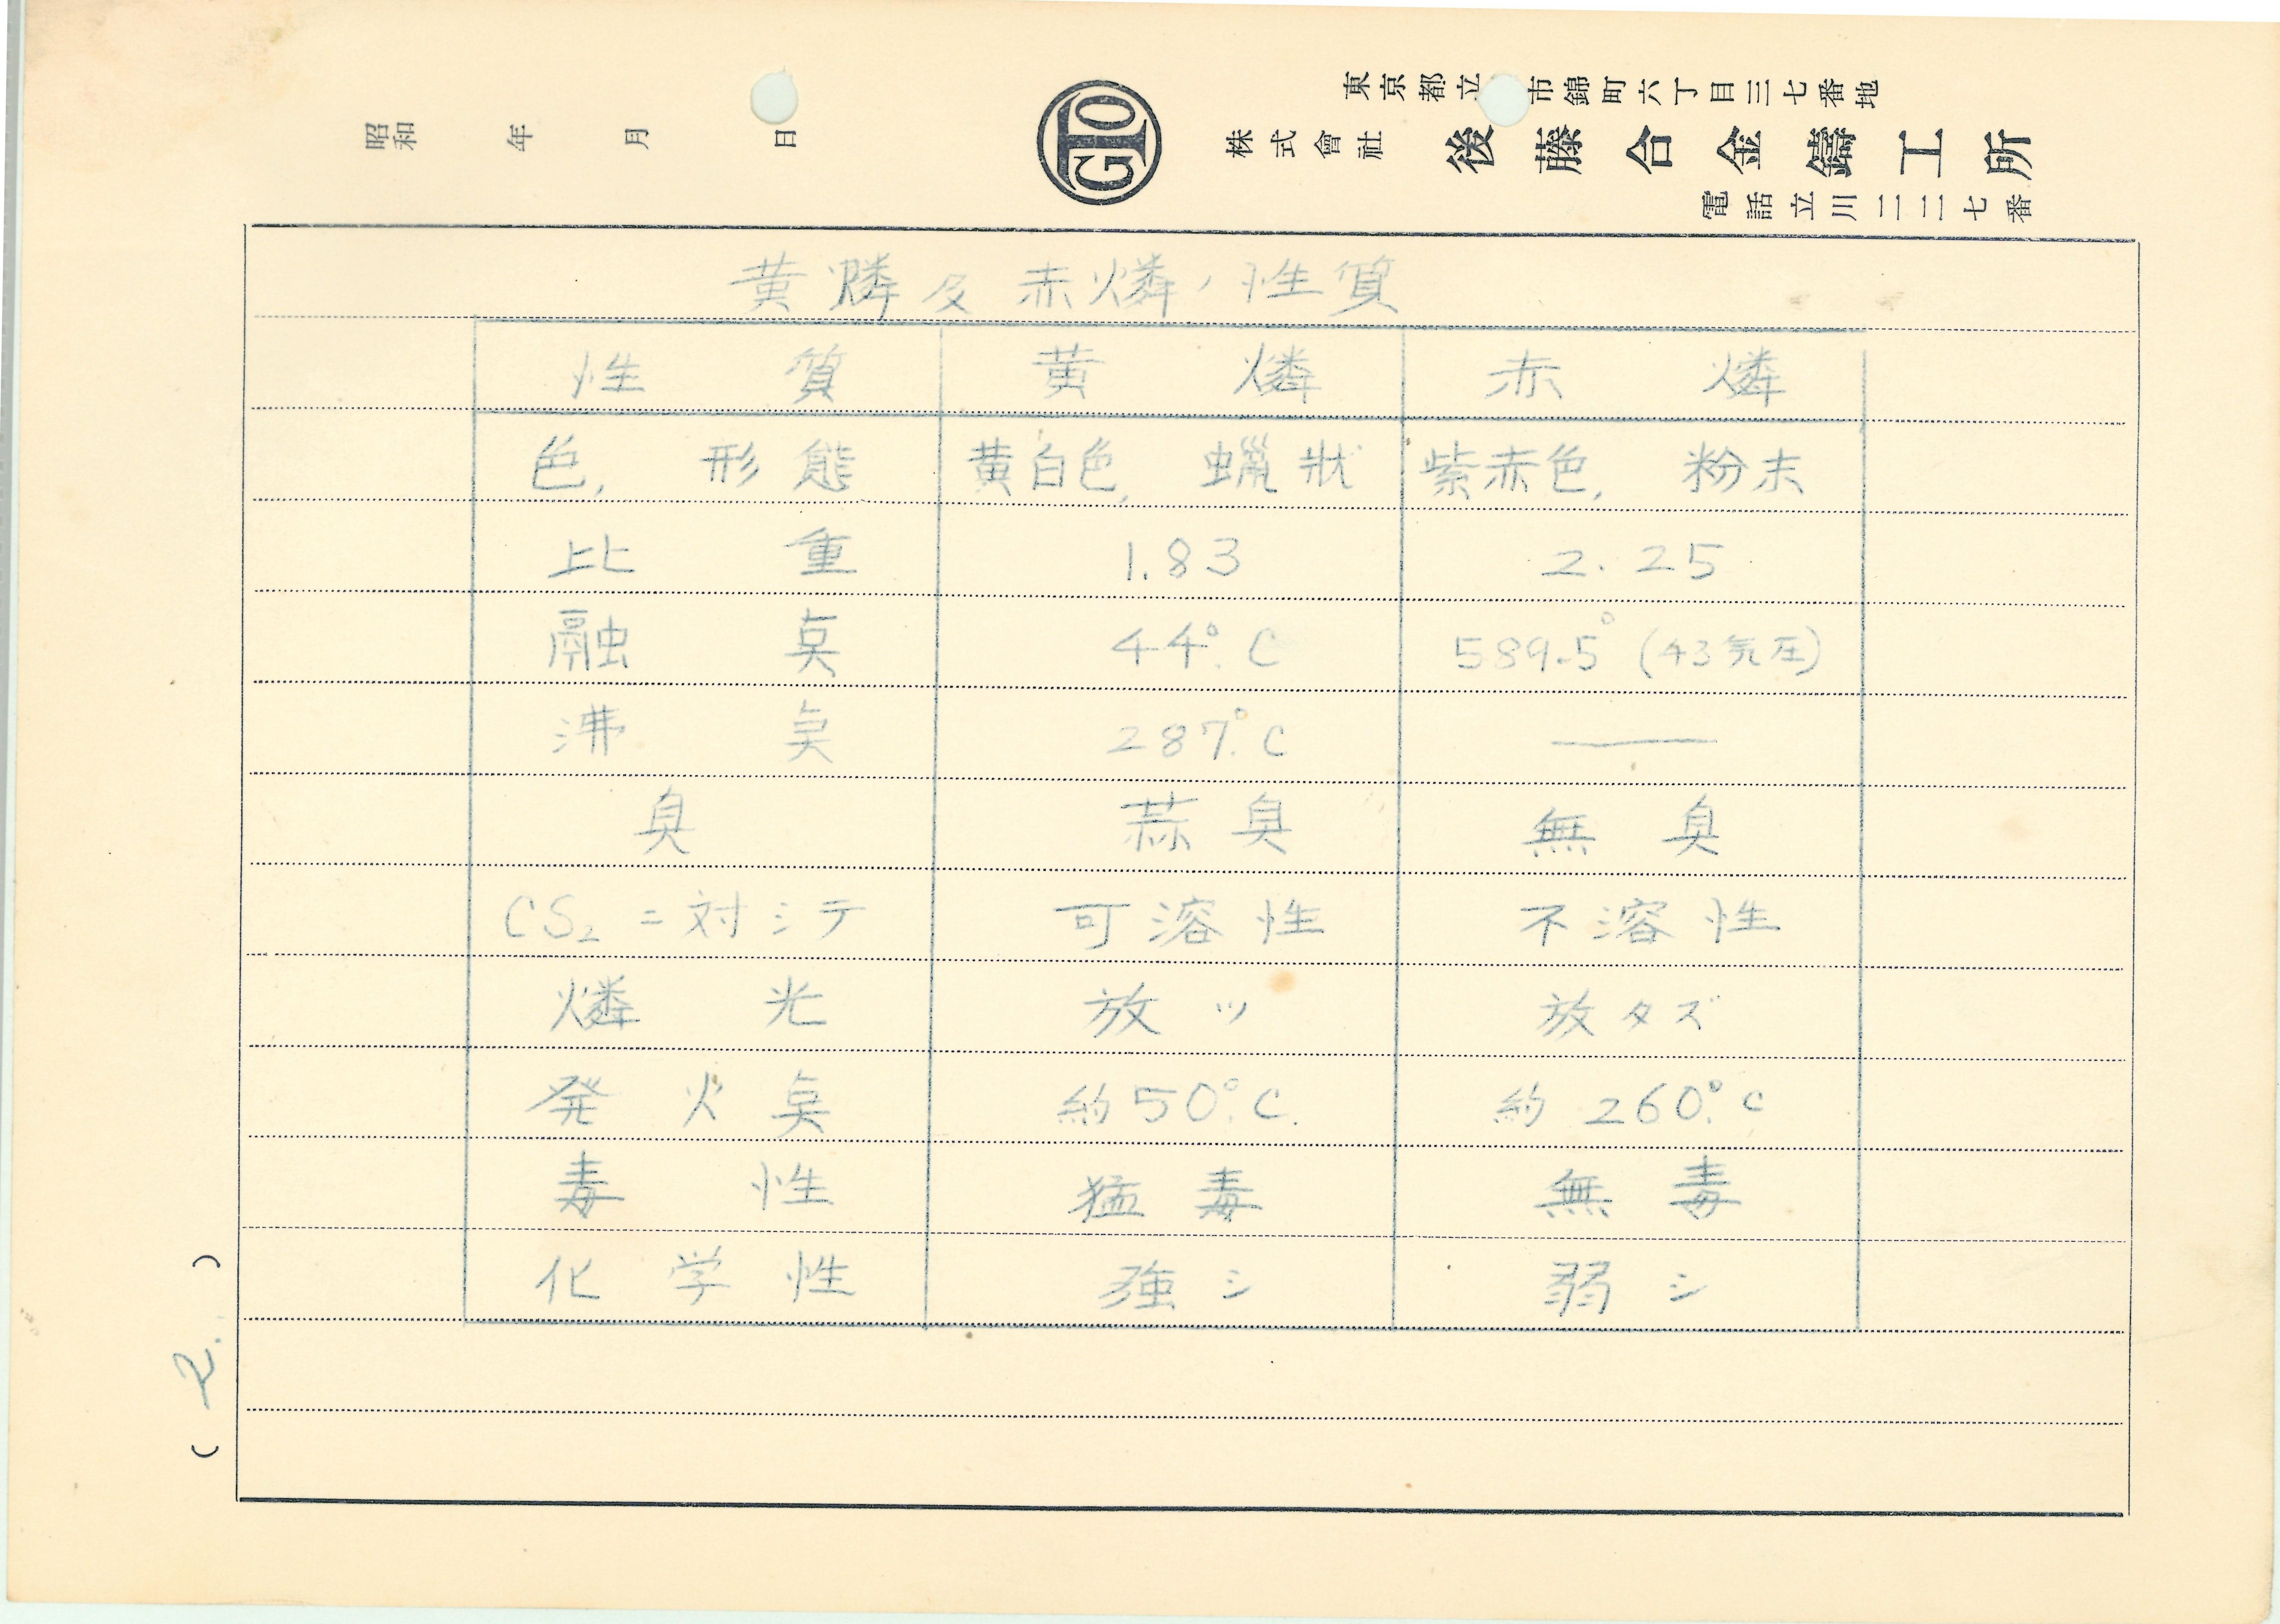 東京都立 市錦町六丁目三七番地
株式會社 後藤合金鑄工所
電話立川二二七番
GTO
昭和 年 月 日
黄燐及赤燐ノ性質
性質 黄燐 赤燐
色, 形態 黄白色, 蠟状 紫赤色, 粉末
比重 1.83 2.25
融点 44°.C 589.5° (43気圧)
沸点 287°.C ―
臭 蒜臭 無臭
CS₂ニ対シテ 可溶性 不溶性
燐光 放ツ 放タズ
発火点 約50°.C. 約260°.C
毒性 猛毒 無毒
化学性 強シ 弱シ
( 2. )